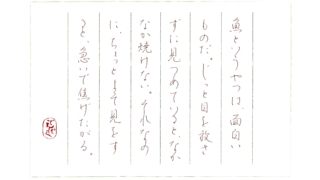 魚というやつは、面白い
ものだ。じっと目を放さ
ずに見つめていると、なか
なか焼けない。それなの
に、ちょっとよそ見をす
ると、急いで焦げたがる。